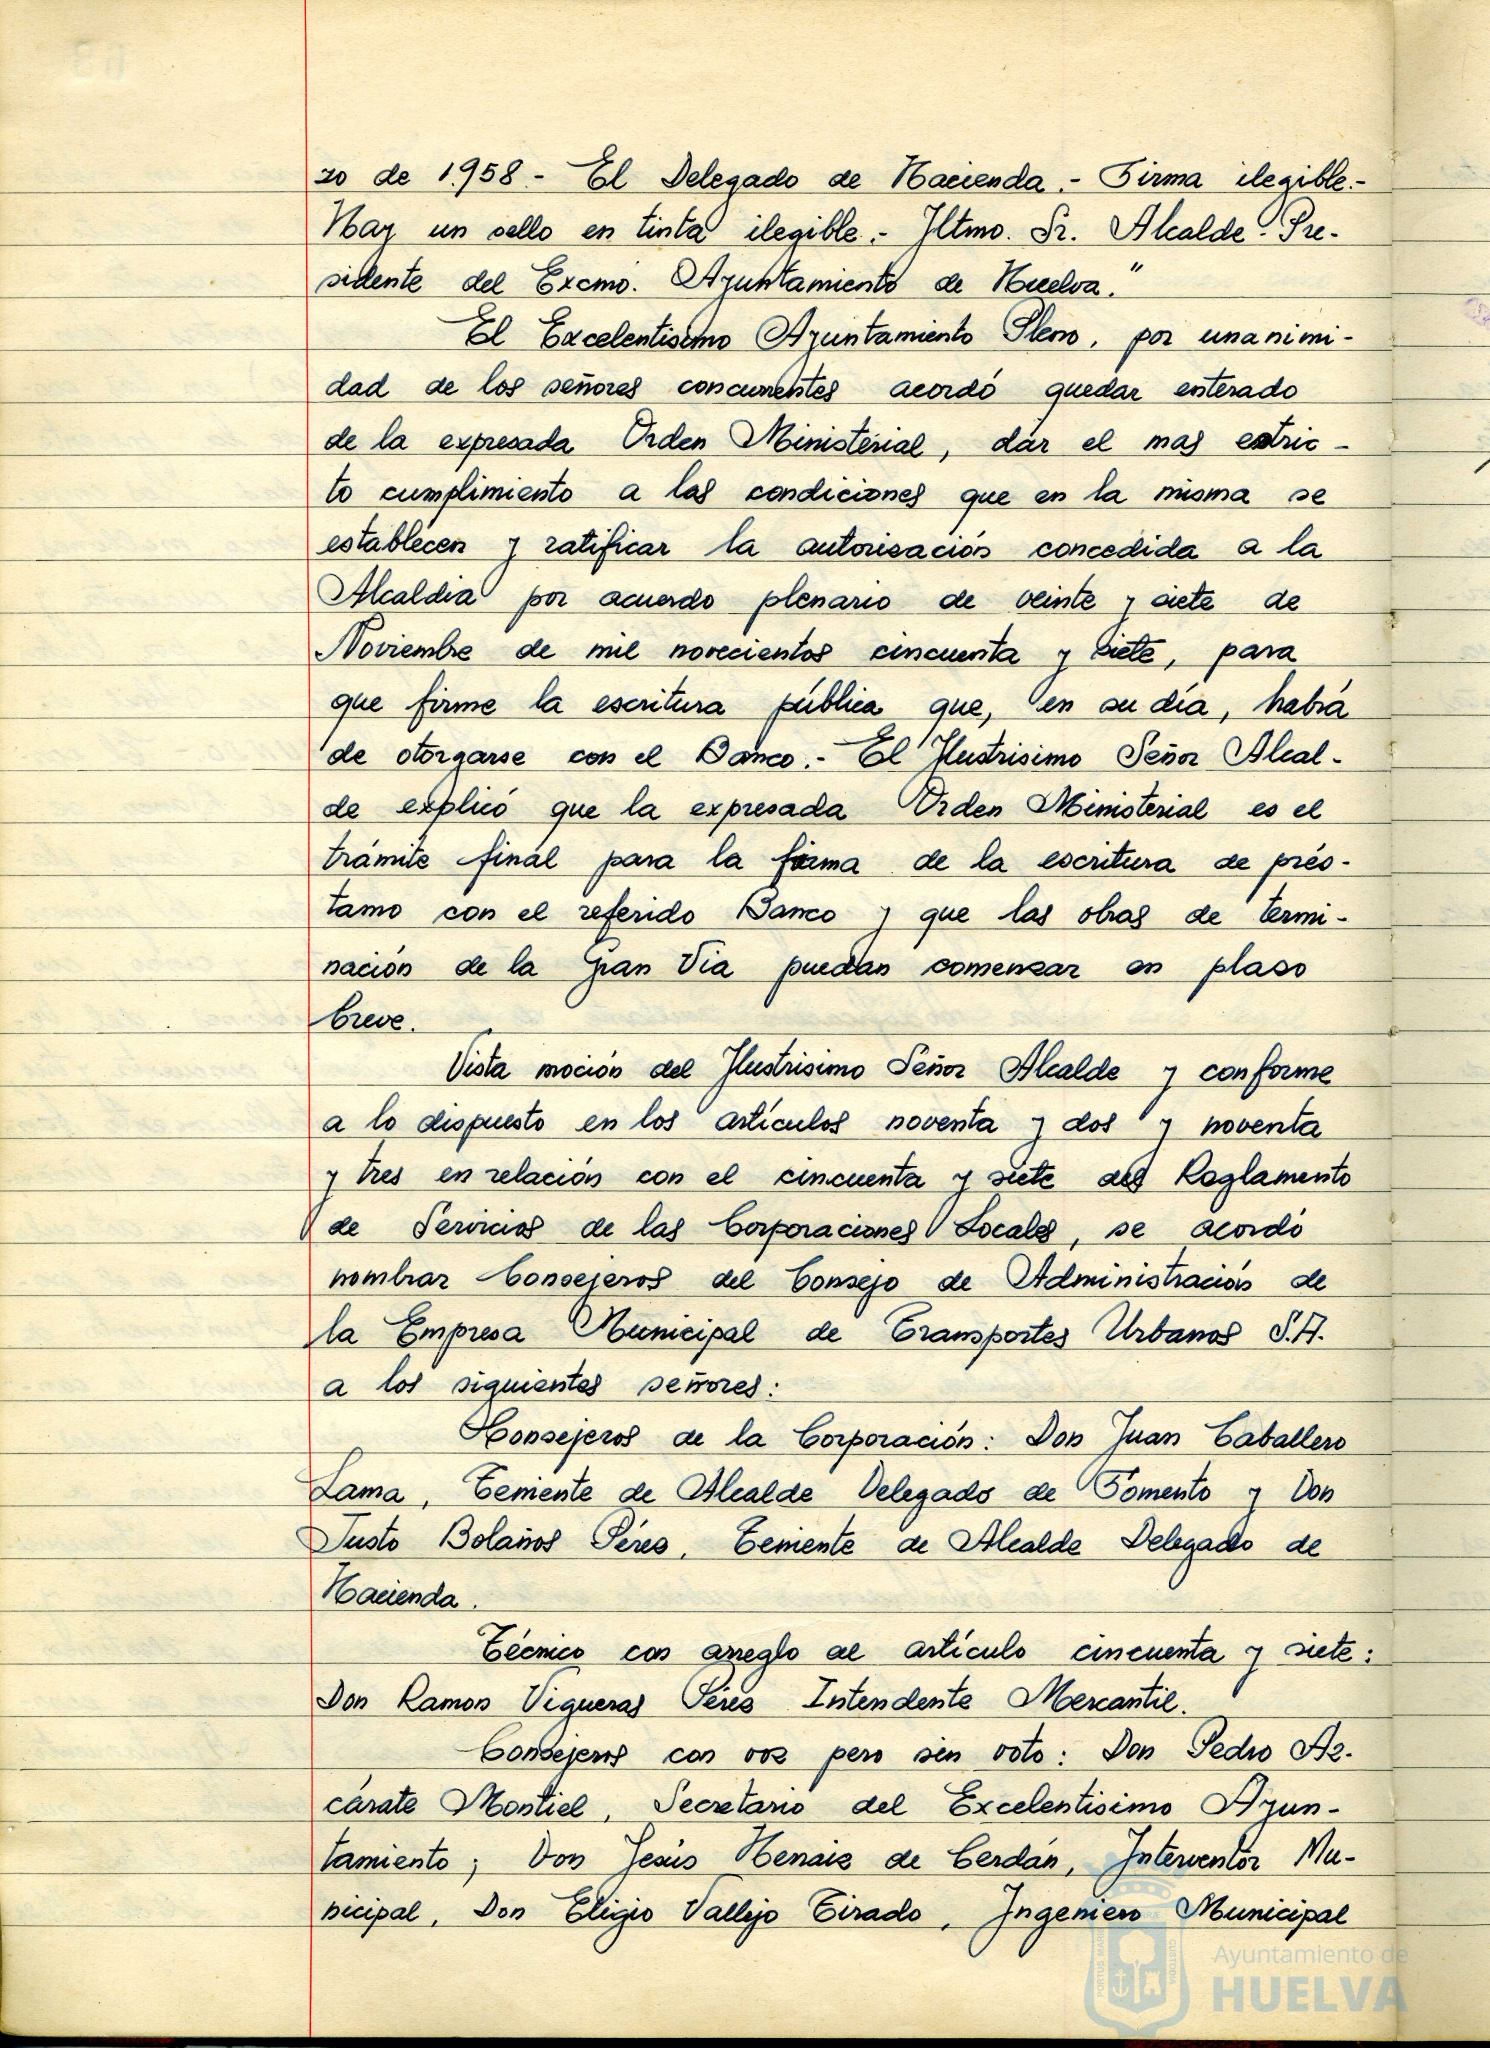 zo de 1.958.- El Delegado de Hacienda.- Firma ilegible.-
Hay un sello en tinta ilegible.- Iltmo. Sr. Alcalde-Pre-
sidente del Excmo. Ayuntamiento de Huelva."
El Excelentisimo Ayuntamiento Pleno, por unanimi-
dad de los señores concurrentes acordó quedar enterado
de la expresada Orden Ministerial, dar el mas estric-
to cumplimiento a las condiciones que en la misma se
establecen y ratificar la autorización concedida a la
Alcaldia por acuerdo plenario de veinte y siete de
Noviembre de mil novecientos cincuenta y siete, para
que firme la escritura pública que, en su día, habrá
de otorgarse con el Banco.- El Ilustrisimo Señor Alcal-
de explicó que la expresada Orden Ministerial es el
trámite final para la firma de la escritura de prés-
tamo con el referido Banco y que las obras de termi-
nación de la Gran Via puedan comenzar en plazo
breve.
Vista moción del Ilustrisimo Señor Alcalde y conforme
a lo dispuesto en los artículos noventa y dos y noventa
y tres en relación con el cincuenta y siete del Reglamento
de Servicios de las Corporaciones Locales, se acordó
nombrar Consejeros del Consejo de Administración de
la Empresa Municipal de Transportes Urbanos S.A.
a los siguientes señores:
Consejeros de la Corporación: Don Juan Caballero
Lama, Teniente de Alcalde Delegado de Fomento y Don
Justo Bolaños Pérez, Teniente de Alcalde Delegado de
Hacienda.
Técnico con arreglo al artículo cincuenta y siete:
Don Ramon Vigueras Pérez Intendente Mercantil.
Consejeros con voz pero sin voto: Don Pedro Az-
cárate Montiel, Secretario del Excelentisimo Ayun-
tamiento; Don Jesús Henaiz de Cerdán, Interventor Mu-
nicipal, Don Eligio Vallejo Tirado, Ingeniero Municipal
Ayuntamiento de
HUELVA